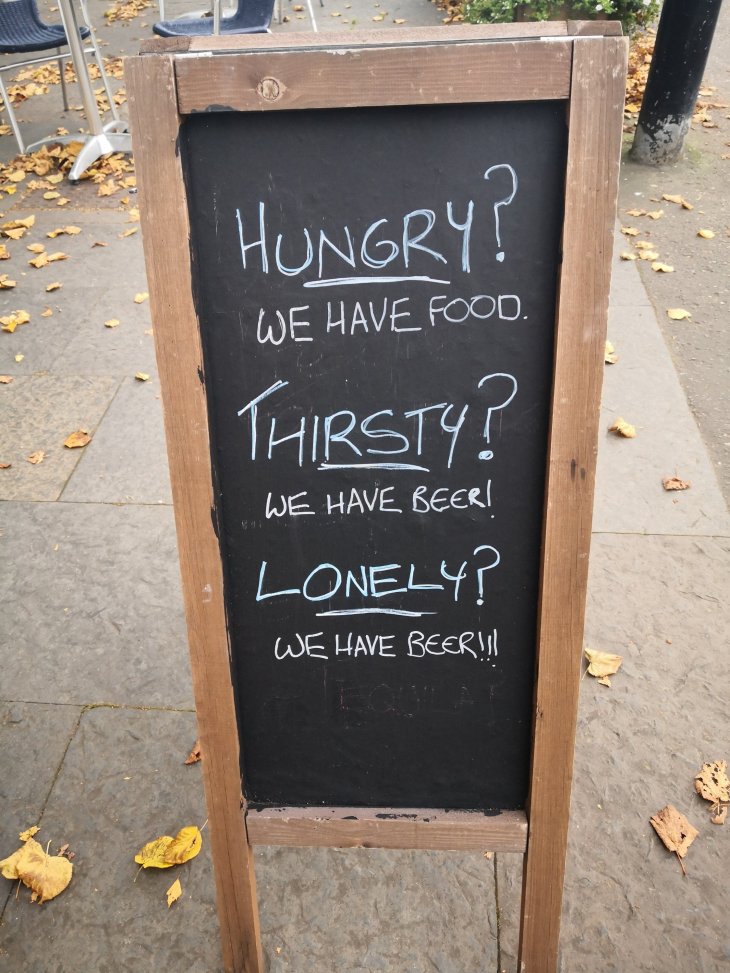 HUNGRY?
WE HAVE FOOD.
THIRSTY?
WE HAVE BEER!
LONELY?
WE HAVE BEER!!!